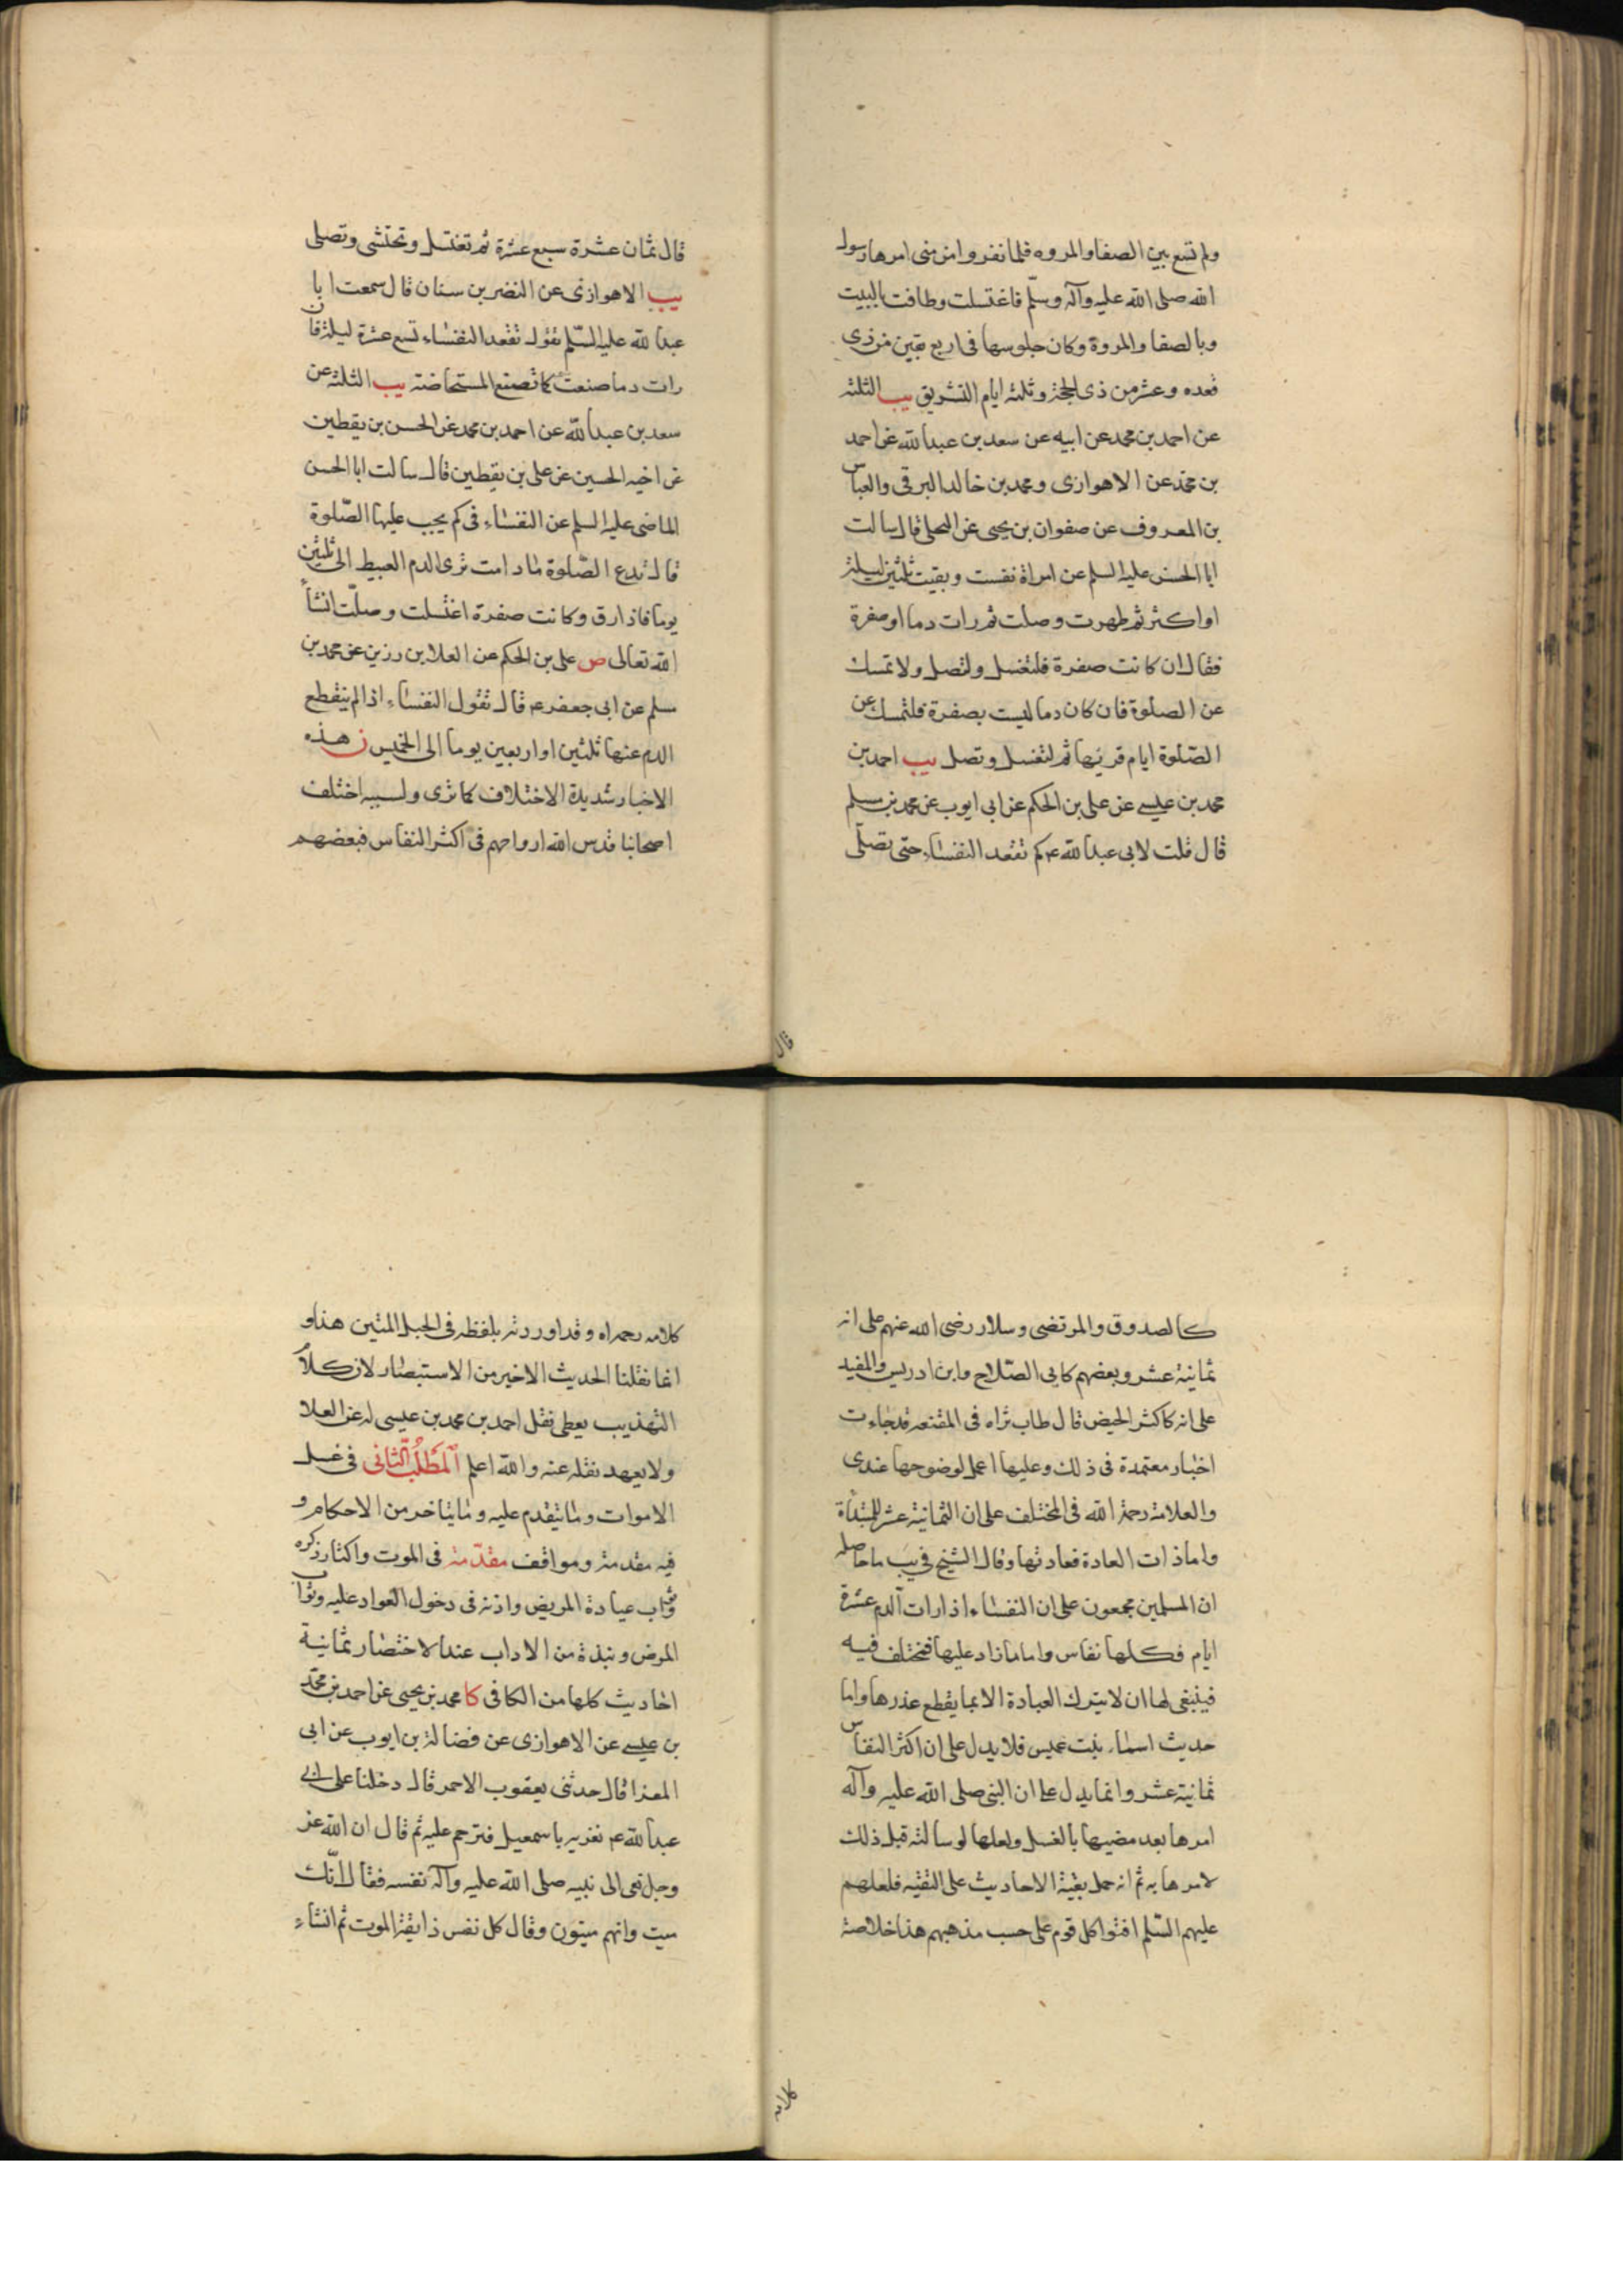 ولم تسع بين الصفا والمروه فلما نفروا من منى امرها رسول
الله صلى الله عليه وآله وسلم فاغتسلت وطافت بالبيت
وبالصفا والمروة وكان جلوسها فى اربع بقين من ذى
قعده وعشر من ذى الحجة وثلثه ايام التشريق يب الثلثه
عن احمد بن محمد عن ابيه عن سعد بن عبد الله عن احمد
بن محمد عن الاهوازى ومحمد بن خالد البرقى والعباس
بن المعروف عن صفوان بن يحيى عن البجلى قال سالت
ابا الحسن عليه السلم عن امراة نفست وبقيت ثلثين ليلة
او اكثر ثم طهرت وصلت ثم رات دما او صفرة
فقال ان كانت صفرة فلتغسل ولتصل ولا تمسك
عن الصلوة فان كان دما ليست بصفرة فلتمسك عن
الصلوة ايام قرئها ثم لتغسل وتصل يب احمد بن
محمد بن عيسى عن على بن الحكم عن ابى ايوب عن محمد بن مسلم
قال قلت لابى عبد الله ع كم تقعد النفساء حتى تصلى
قال
قال ثمان عشرة سبع عشرة ثم تغتسل وتحتشى وتصلى
يب الاهوازى عن النضر بن سنان قال سمعت ابا
عبد الله عليه السلم يقول تقعد النفساء تسع عشرة ليلة فان
رات دما صنعت كما تصنع المستحاضة يب الثلثه عن
سعد بن عبد الله عن احمد بن محمد عن الحسن بن يقطين
عن اخيه الحسين عن على بن يقطين قال سالت ابا الحسن
الماضى عليه السلم عن النفساء فى كم يجب عليها الصلوة
قال تدع الصلوة ما دامت ترى الدم العبيط الى ثلثين
يوما فاذا رق وكانت صفرة اغتسلت وصلت انشاء
الله تعالى ص على بن الحكم عن العلا بن رزين عن محمد بن
مسلم عن ابى جعفر ع قال تقول النفساء اذا لم ينقطع
الدم عنها ثلثين او اربعين يوما الى الخمسين ن هذه
الاخبار شديدة الاختلاف كما ترى ولسببه اختلف
اصحابنا قدس الله ارواحهم فى اكثر النفاس فبعضهم
كالصدوق والمرتضى وسلار رضى الله عنهم على انه
ثمانية عشر وبعضهم كابى الصلاح وابن ادريس والمفيد
على انه كاكثر الحيض قال طاب ثراه فى المقنعه قد جاءت
اخبار معتمدة فى ذلك وعليها اعمل لوضوحها عندى
والعلامة رحمة الله فى المختلف على ان الثمانية عشر للمبتداة
واما ذات العادة فعادتها وقال الشيخ فى يب ما حاصله
ان المسلمين مجمعون على ان النفساء اذا رات الدم عشرة
ايام فكلها نفاس واما ما زاد عليها فمختلف فيه
فينبغى لها ان لا يترك العبادة الا بما يقطع عذرها واما
حديث اسماء بنت عميس فلا يدل على ان اكثر النفاس
ثمانية عشر وانما يدل على ان النبى صلى الله عليه وآله
امرها بعد مضيها بالغسل ولعلها لو سالته قبل ذلك
لامرها به ثم انه حمل بقية الاحاديث على التقيه فلعلهم
عليهم السلم افتوا كل قوم على حسب مذهبهم هذا خلاصة
كلامه
كلامه رحمه اه وقد اوردته بلفظه فى الحبل المتين هذا و
انما نقلنا الحديث الاخير من الاستبصار لان كلام
التهذيب يعطى نقل احمد بن محمد بن عيسى له عن العلا
ولا يعهد نقله عنه والله اعلم المطلب الثانى فى غسل
الاموات وما يتقدم عليه وما يتاخر من الاحكام و
فيه مقدمة ومواقف مقدمة فى الموت واكثار ذكره
وثواب عيادة المريض واذنه فى دخول العواد عليه وثواب
المرض ونبذة من الاداب عند الاحتضار ثمانية
احاديث كلها من الكافى كا محمد بن يحيى عن احمد بن محمد
بن عيسى عن الاهوازى عن فضالة بن ايوب عن ابى
المعزا قال حدثنى يعقوب الاحمر قال دخلنا على ابى
عبد الله ع نعزيه باسمعيل فترحم عليه ثم قال ان الله عز
وجل نعى الى نبيه صلى الله عليه وآله نفسه فقال انك
ميت وانهم ميتون وقال كل نفس ذايقة الموت ثم انشاء